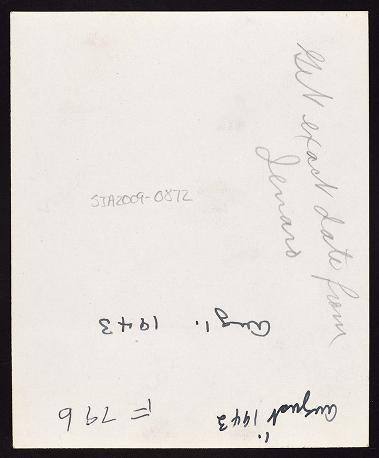 Get exact date from
Jenaro
SIA2009-0872
Aug. 1943
August 1943
F 796